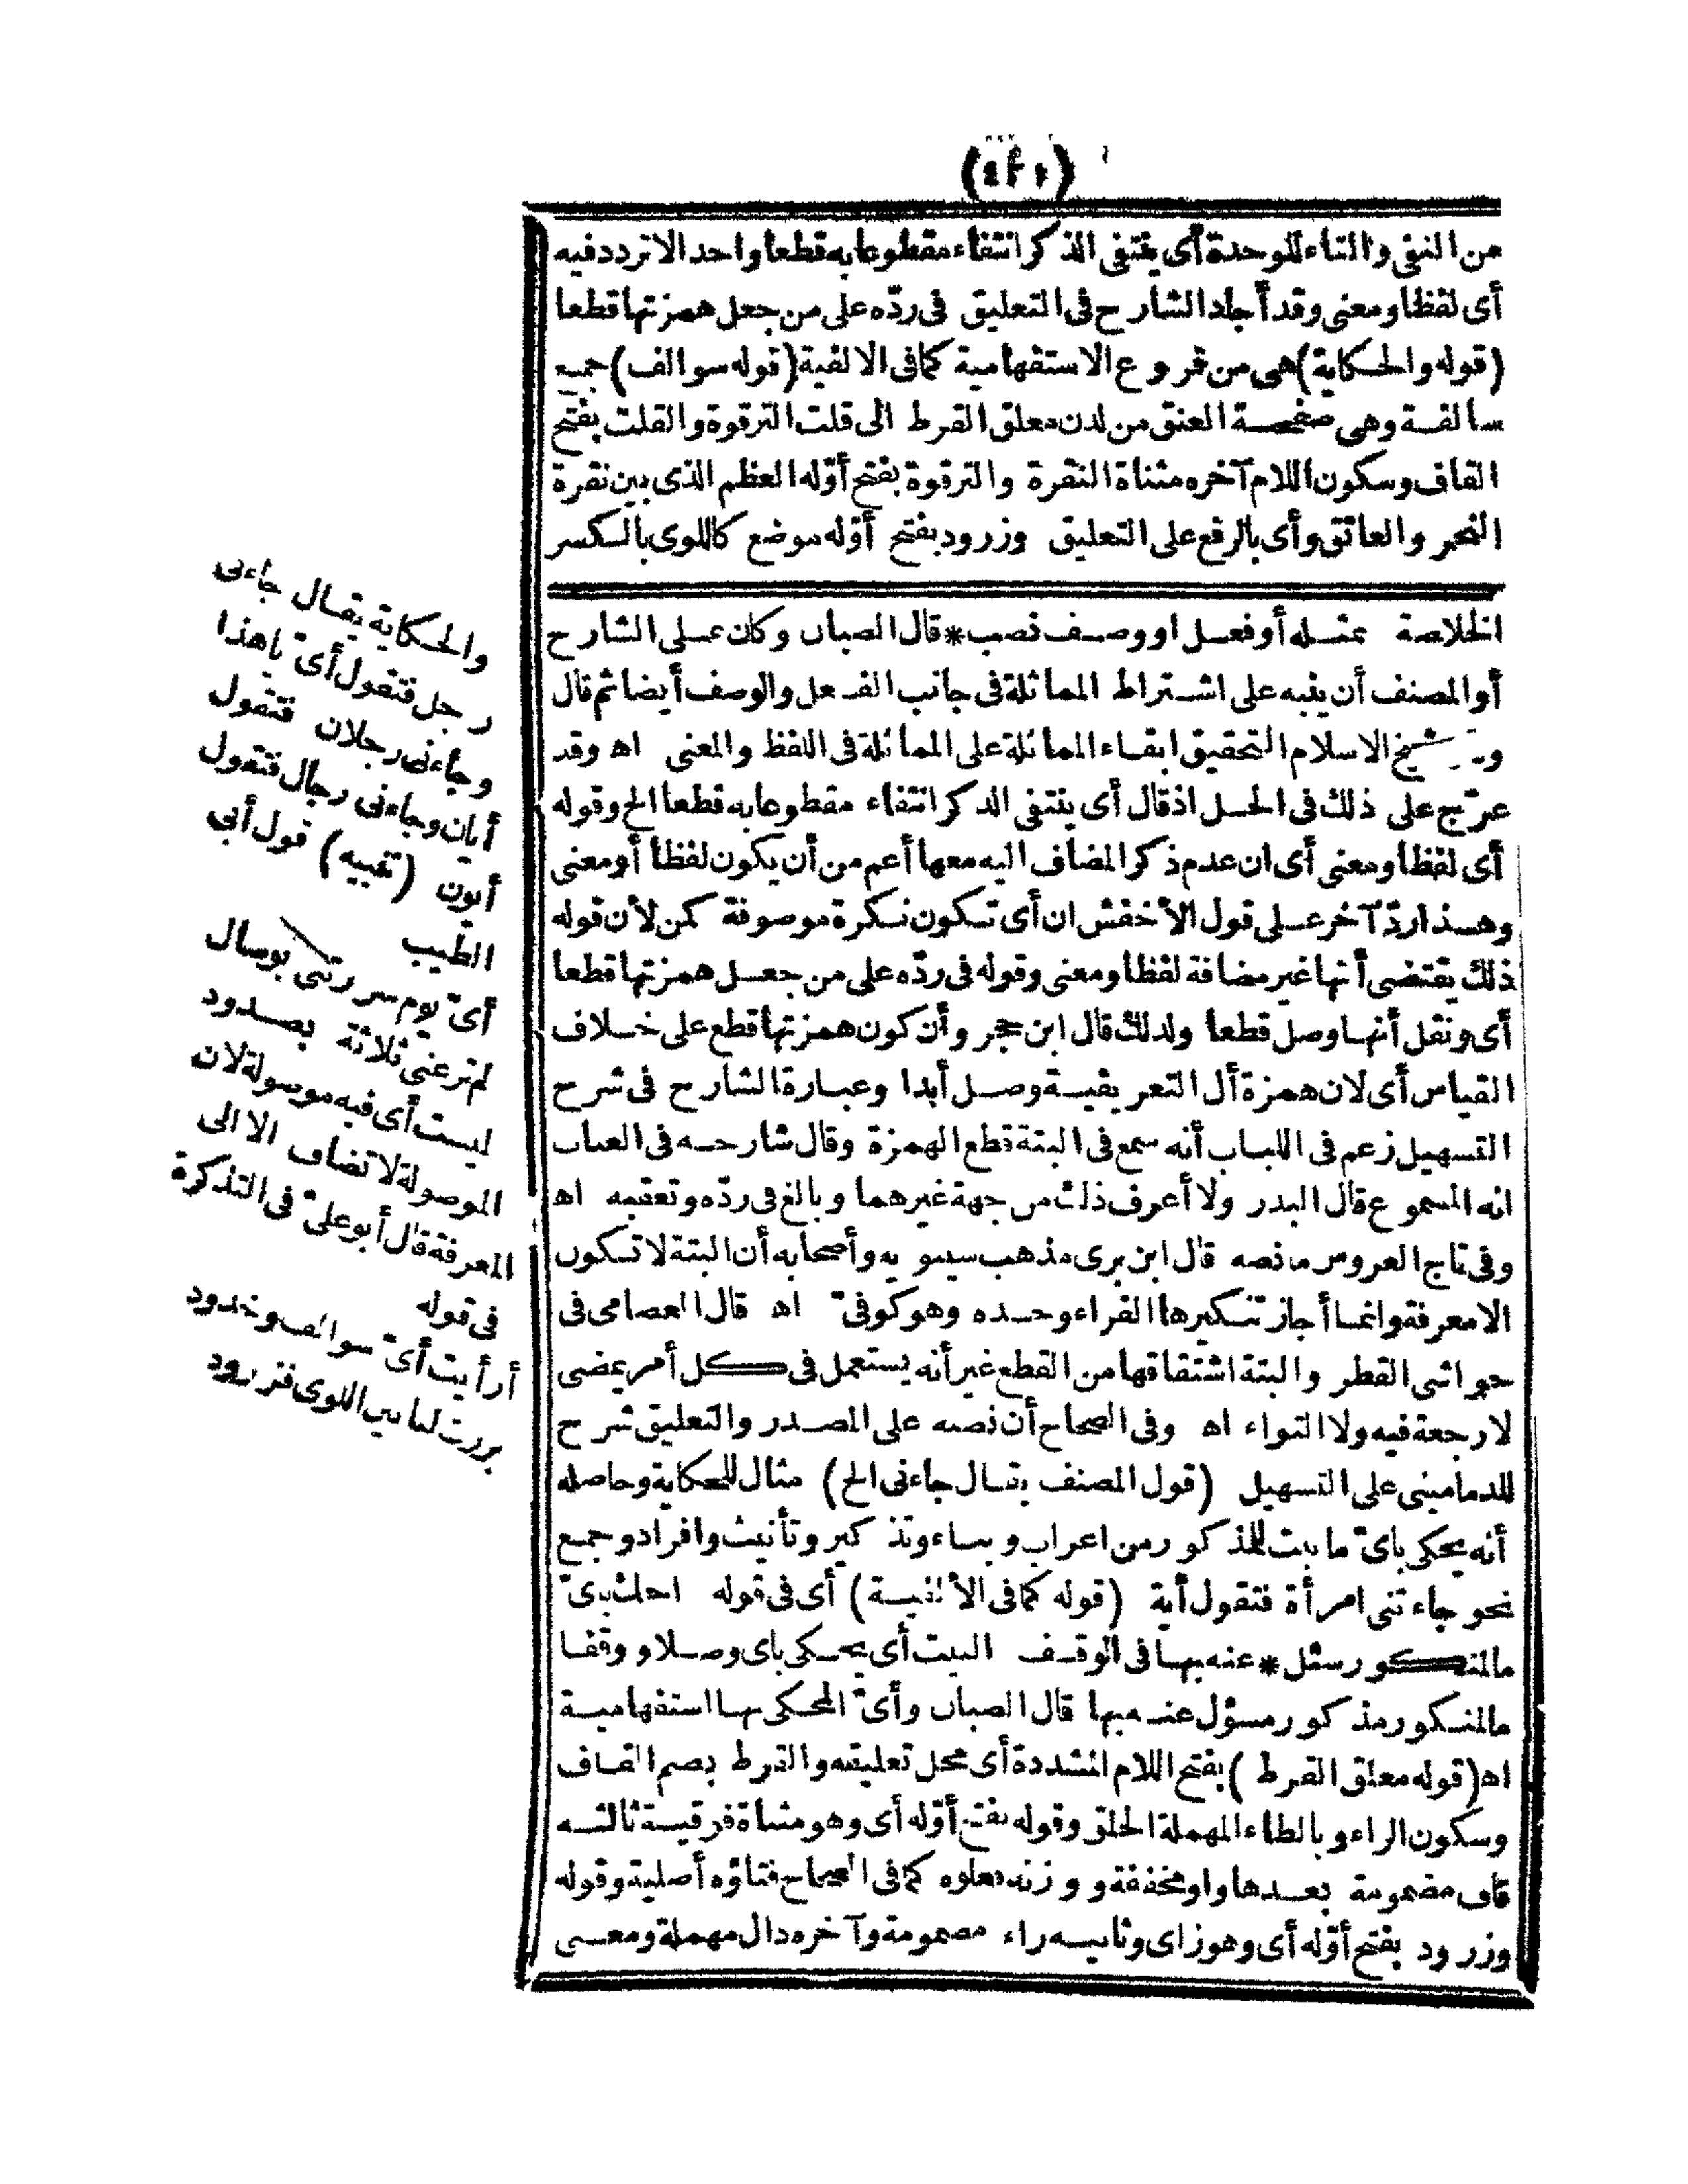 من النفى والتاء للوحدة أى ينتفى الذكر انتفاء مقطوعا به قطعا واحدا لا تردد فيه
أى لفظا ومعنى وقد أجاد الشارح فى التعليق فى ردّه على من جعل همزتها قطعا
(قوله والحكاية) هى من فروع الاستفهامية كما فى الالفية (قوله سوالف) جمع
سالفة وهى صفحة العنق من لدن معلق القرط الى قلت الترقوة والقلت بفتح
القاف وسكون اللام آخره مثناة النقرة والترقوة بفتح أوّله العظم الذى بين نقرة
النحر والعاتق وأى بالرفع على التعليق وزرود بفتح أوّله موضع كاللوى بالكسر
الخلاصة بمثله أو فعل او وصف نصب * قال الصبان وكان على الشارح
أو المصنف أن ينبه على اشتراط المماثلة فى جانب الفعل والوصف أيضا ثم قال
شيخ الاسلام التحقيق ابقاء المماثلة على المماثلة فى اللفظ والمعنى اه وقد
عرّج على ذلك فى الحل اذ قال أى ينتفى الذكر انتفاء مقطوعا به قطعا الخ وقوله
أى لفظا ومعنى أى ان عدم ذكر المضاف اليه معها أعم من أن يكون لفظا أو معنى
وهذا ردّ آخر على قول الأخفش ان أى تكون نكرة موصوفة كمن لأن قوله
ذلك يقتضى أنها غير مضافة لفظا ومعنى وقوله فى ردّه على من جعل همزتها قطعا
أى ونقل أنها وصل قطعا ولذلك قال ابن حجر وأن كون همزتها قطع على خلاف
القياس أى لان همزة أل التعريفية وصل أبدا وعبارة الشارح فى شرح
التسهيل زعم فى اللباب أنه سمع فى البتة قطع الهمزة وقال شارحه فى العباب
انه المسموع قال البدر ولا أعرف ذلك من جهة غيرهما وبالغ فى ردّه وتعقبه اه
وفى تاج العروس ما نصه قال ابن برى مذهب سيبويه وأصحابه أن البتة لا تكون
الا معرفة وانما أجاز تنكيرها الفراء وحده وهو كوفىّ اه قال العصامى فى
حواشى القطر والبتة اشتقاقها من القطع غير أنه يستعمل فى كل أمر يمضى
لا رجعة فيه ولا التواء اه وفى الصحاح أن نصبه على المصدر والتعليق شرح
للدمامينى على التسهيل (قول المصنف يقال جاءنى الخ) مثال للحكاية وحاصله
أنه يحكى باىّ ما ثبت للمذكور من اعراب وبناء وتذكير وتأنيث وافراد وجمع
نحو جاءتنى امرأة فتقول أية (قوله كما فى الألفية) أى فى قوله احك بأىّ
ما لمنكور سئل * عنه بها فى الوقف البيت أى يحكى باى وصلا ووقفا
ما لمنكور مذكور مسؤل عنه بها قال الصبان وأىّ المحكى بها استفهامية
اه (قوله معلق القرط) بفتح اللام المشددة أى محل تعليقه والقرط بضم القاف
وسكون الراء وبالطاء المهملة الحلق وقوله بفتح أوّله أى وهو مثناة فوقية ثالثه
قاف مضمومة بعدها واو مخففة ووزنه فعلوه كما فى الصحاح فتاؤه أصلية وقوله
وزرود بفتح أوّله أى وهو زاى وثانيه راء مضمومة وآخره دال مهملة ومعنى
والحكاية يقال جاءنى
رجل فتقول أىّ يا هذا
وجاءنى رجلان فتقول
أيان وجاءنى رجال فتقول
أيون (تنبيه) قول أبى
الطيب
أىّ يوم سررتنى بوصال
لم ترعنى ثلاثة بصدود
ليست أى فيه موصولة لان
الموصولة لا تضاف الا الى
المعرفة قال أبو علىّ فى التذكرة
فى قوله
أرأيت أىّ سوالف وخدود
برزت لنا بين اللوى فزرود